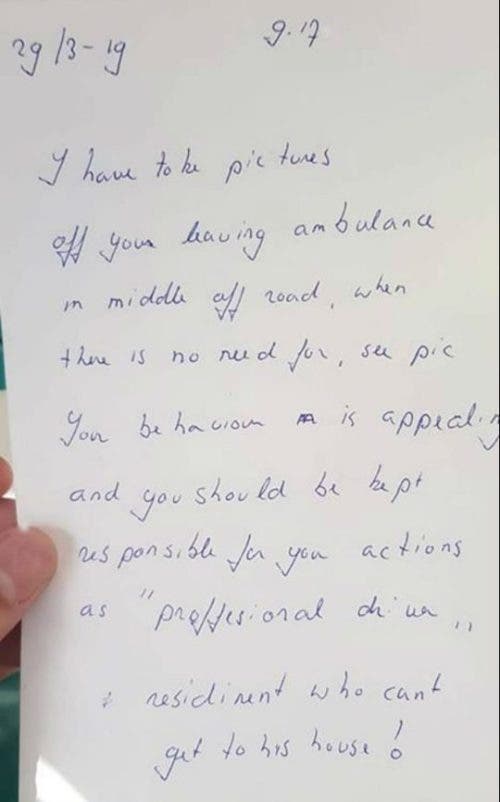 29/3-19 9.17
I have toke pictures
off your leaving ambulance
in middle off road, when
there is no need for, see pic
Your behaviour is appealing
and you should be kept
responsible for you actions
as "proffesional driver"
residinent who cant
get to his house!